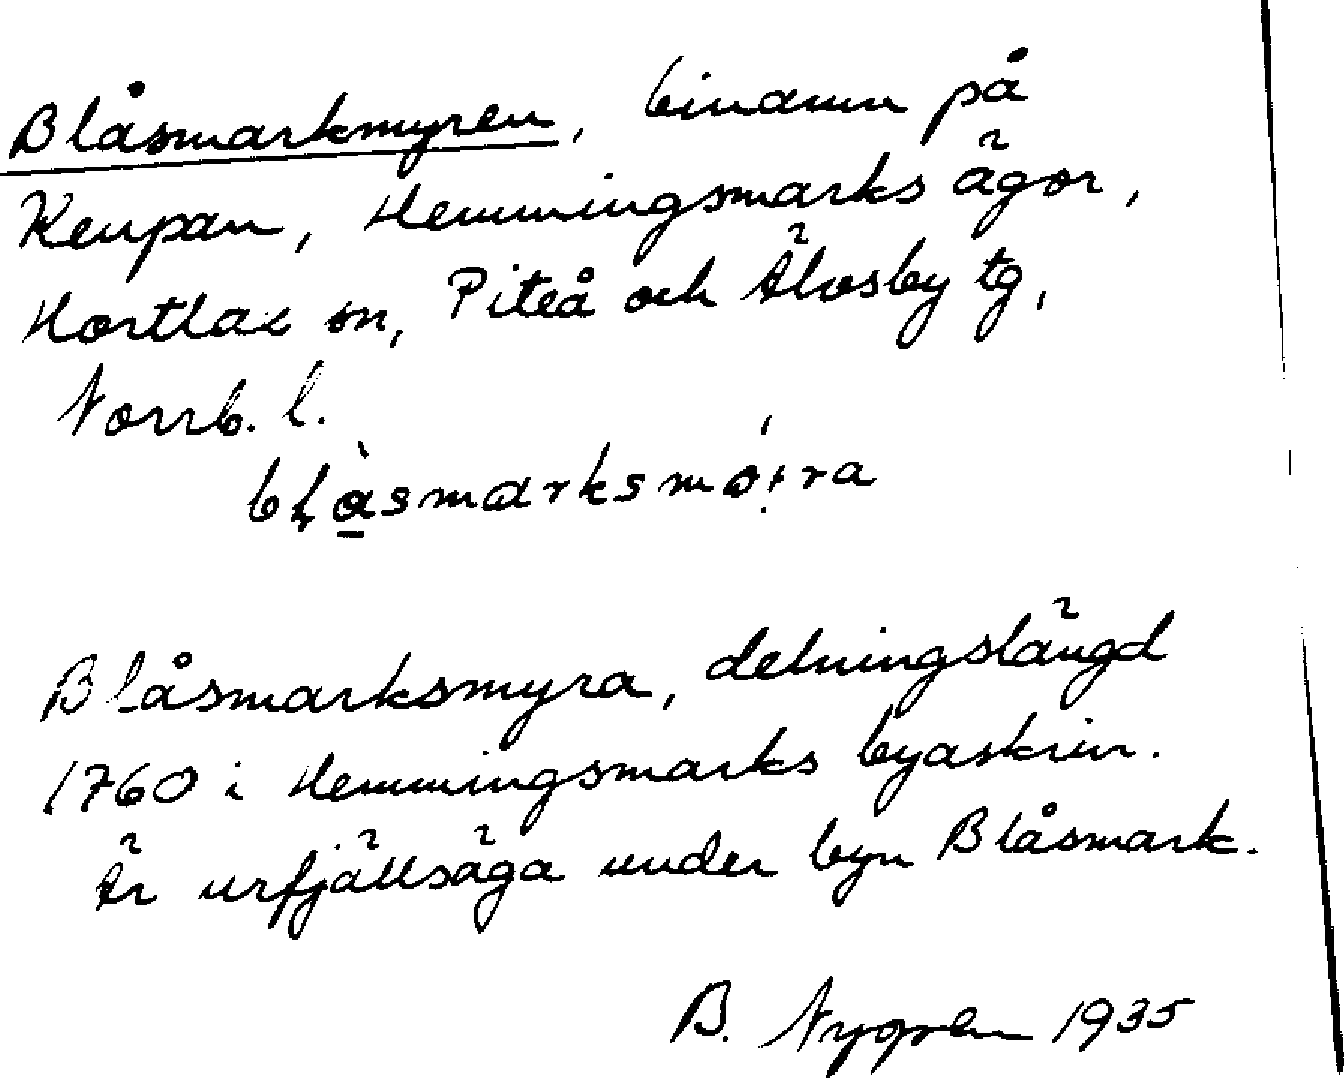 Blåsmarkmyren, binamn på
Kenpan, Hemmingsmarks ägor,
Hortlax sn, Piteå och Älvsby tg,
Norrb. l.
Blåsmarksmyra, delningslängd
1760 i Hemmingsmarks byaskrin.
Är urfjällsäga under byn Blåsmark.
B. Nygren 1935